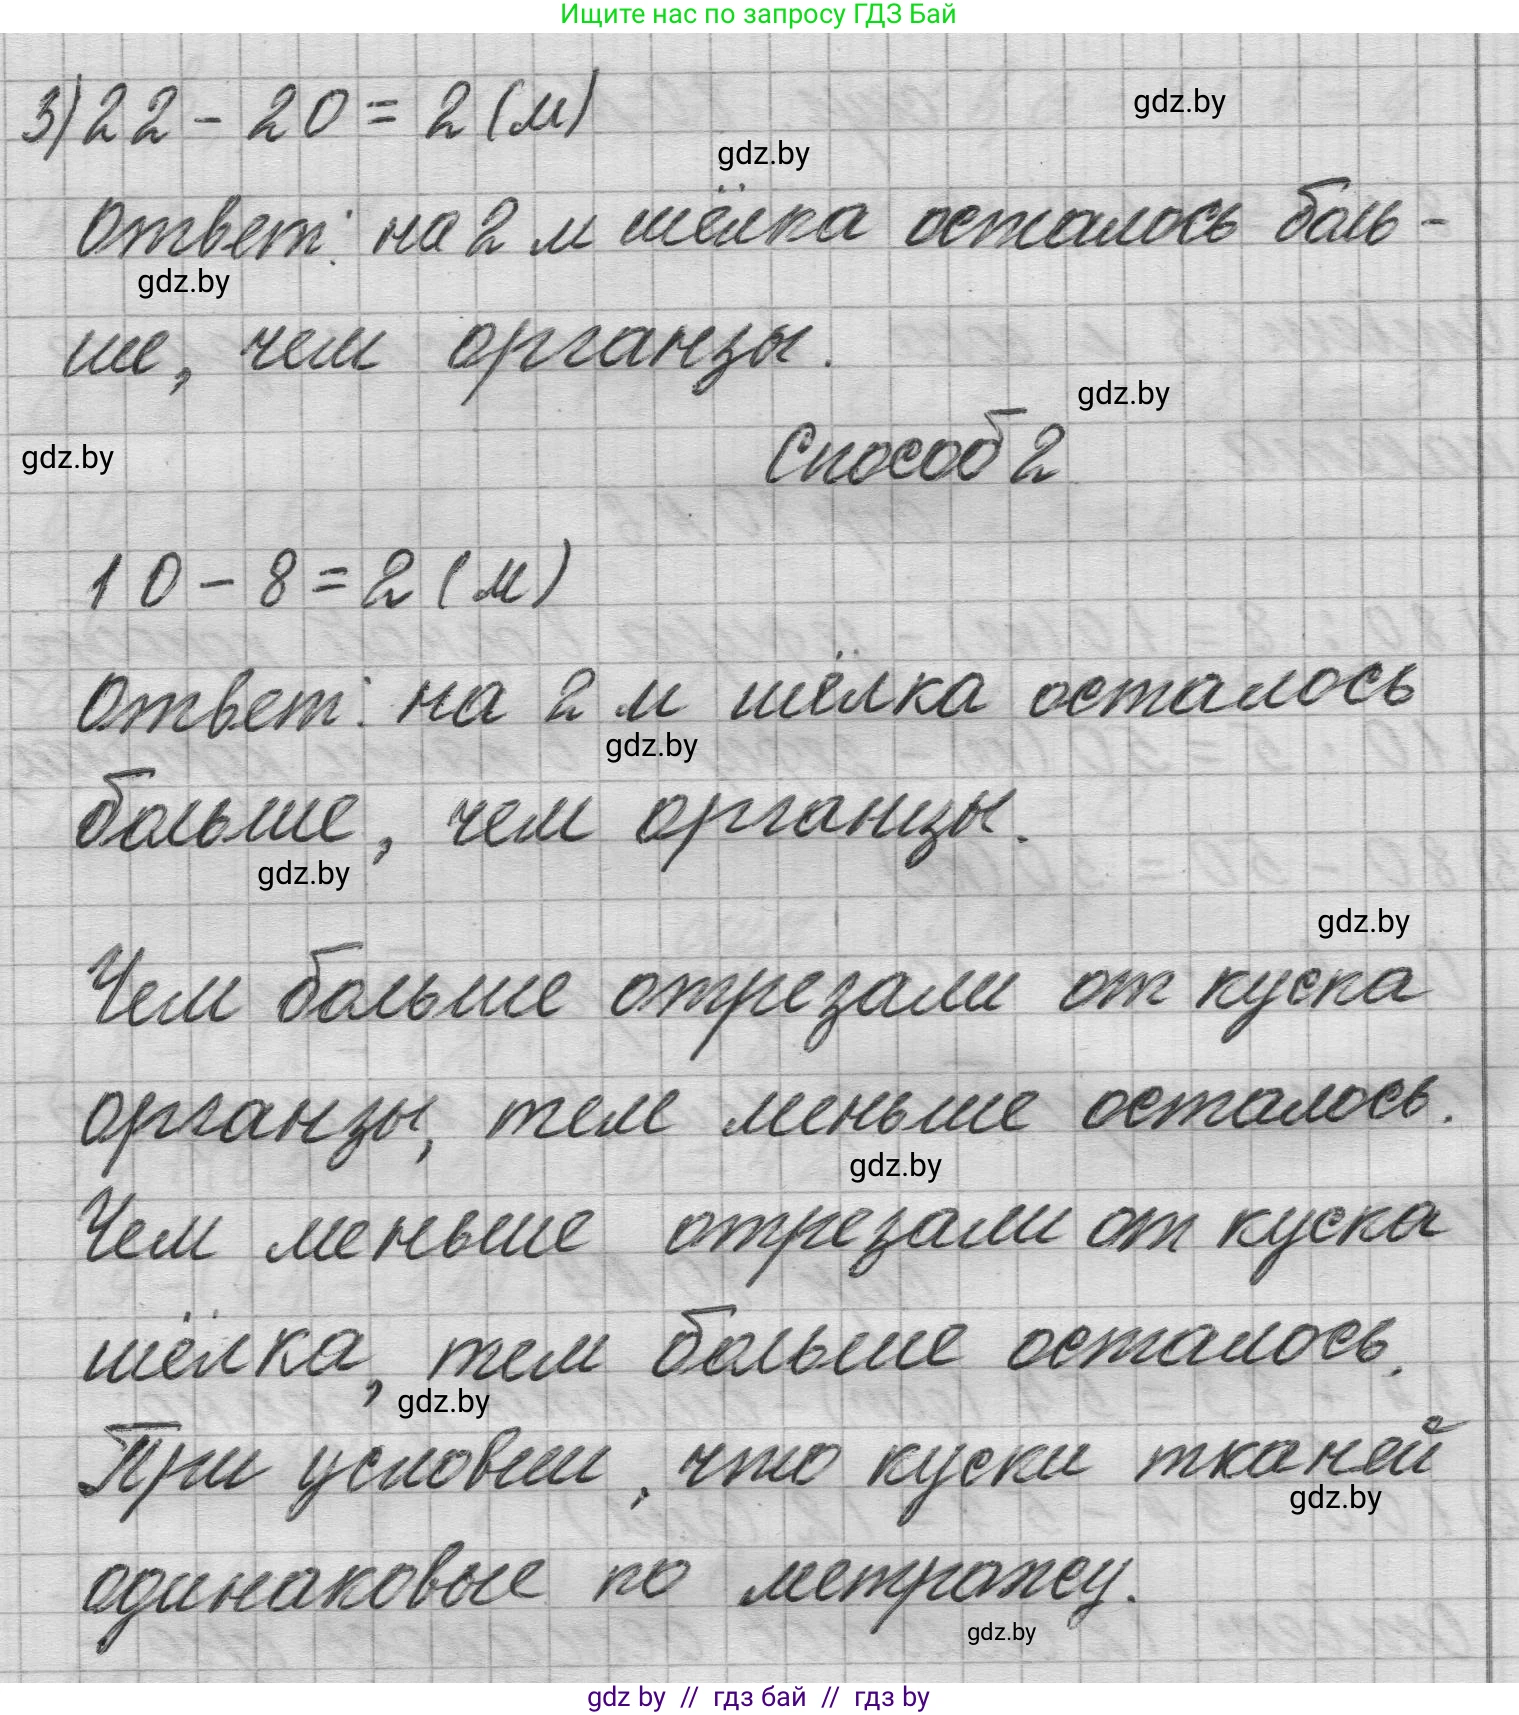 Ищите нас по запросу ГДЗ Бай
3) 22 - 20 = 2 (м)
gdz.by
gdz.by
Ответ: на 2 м шёлка осталось боль-
gdz.by
ше, чем органзы.
gdz.by
Способ 2
gdz.by
10 - 8 = 2 (м)
Ответ: на 2 м шёлка осталось
gdz.by
больше, чем органзы.
gdz.by
gdz.by
Чем больше отрезали от куска
органзы, тем меньше осталось.
gdz.by
Чем меньше отрезали от куска
шёлка, тем больше осталось.
gdz.by
При условии, что куски тканей
gdz.by
одинаковые по метражу.
gdz.by
gdz by // гдз бай // гдз by